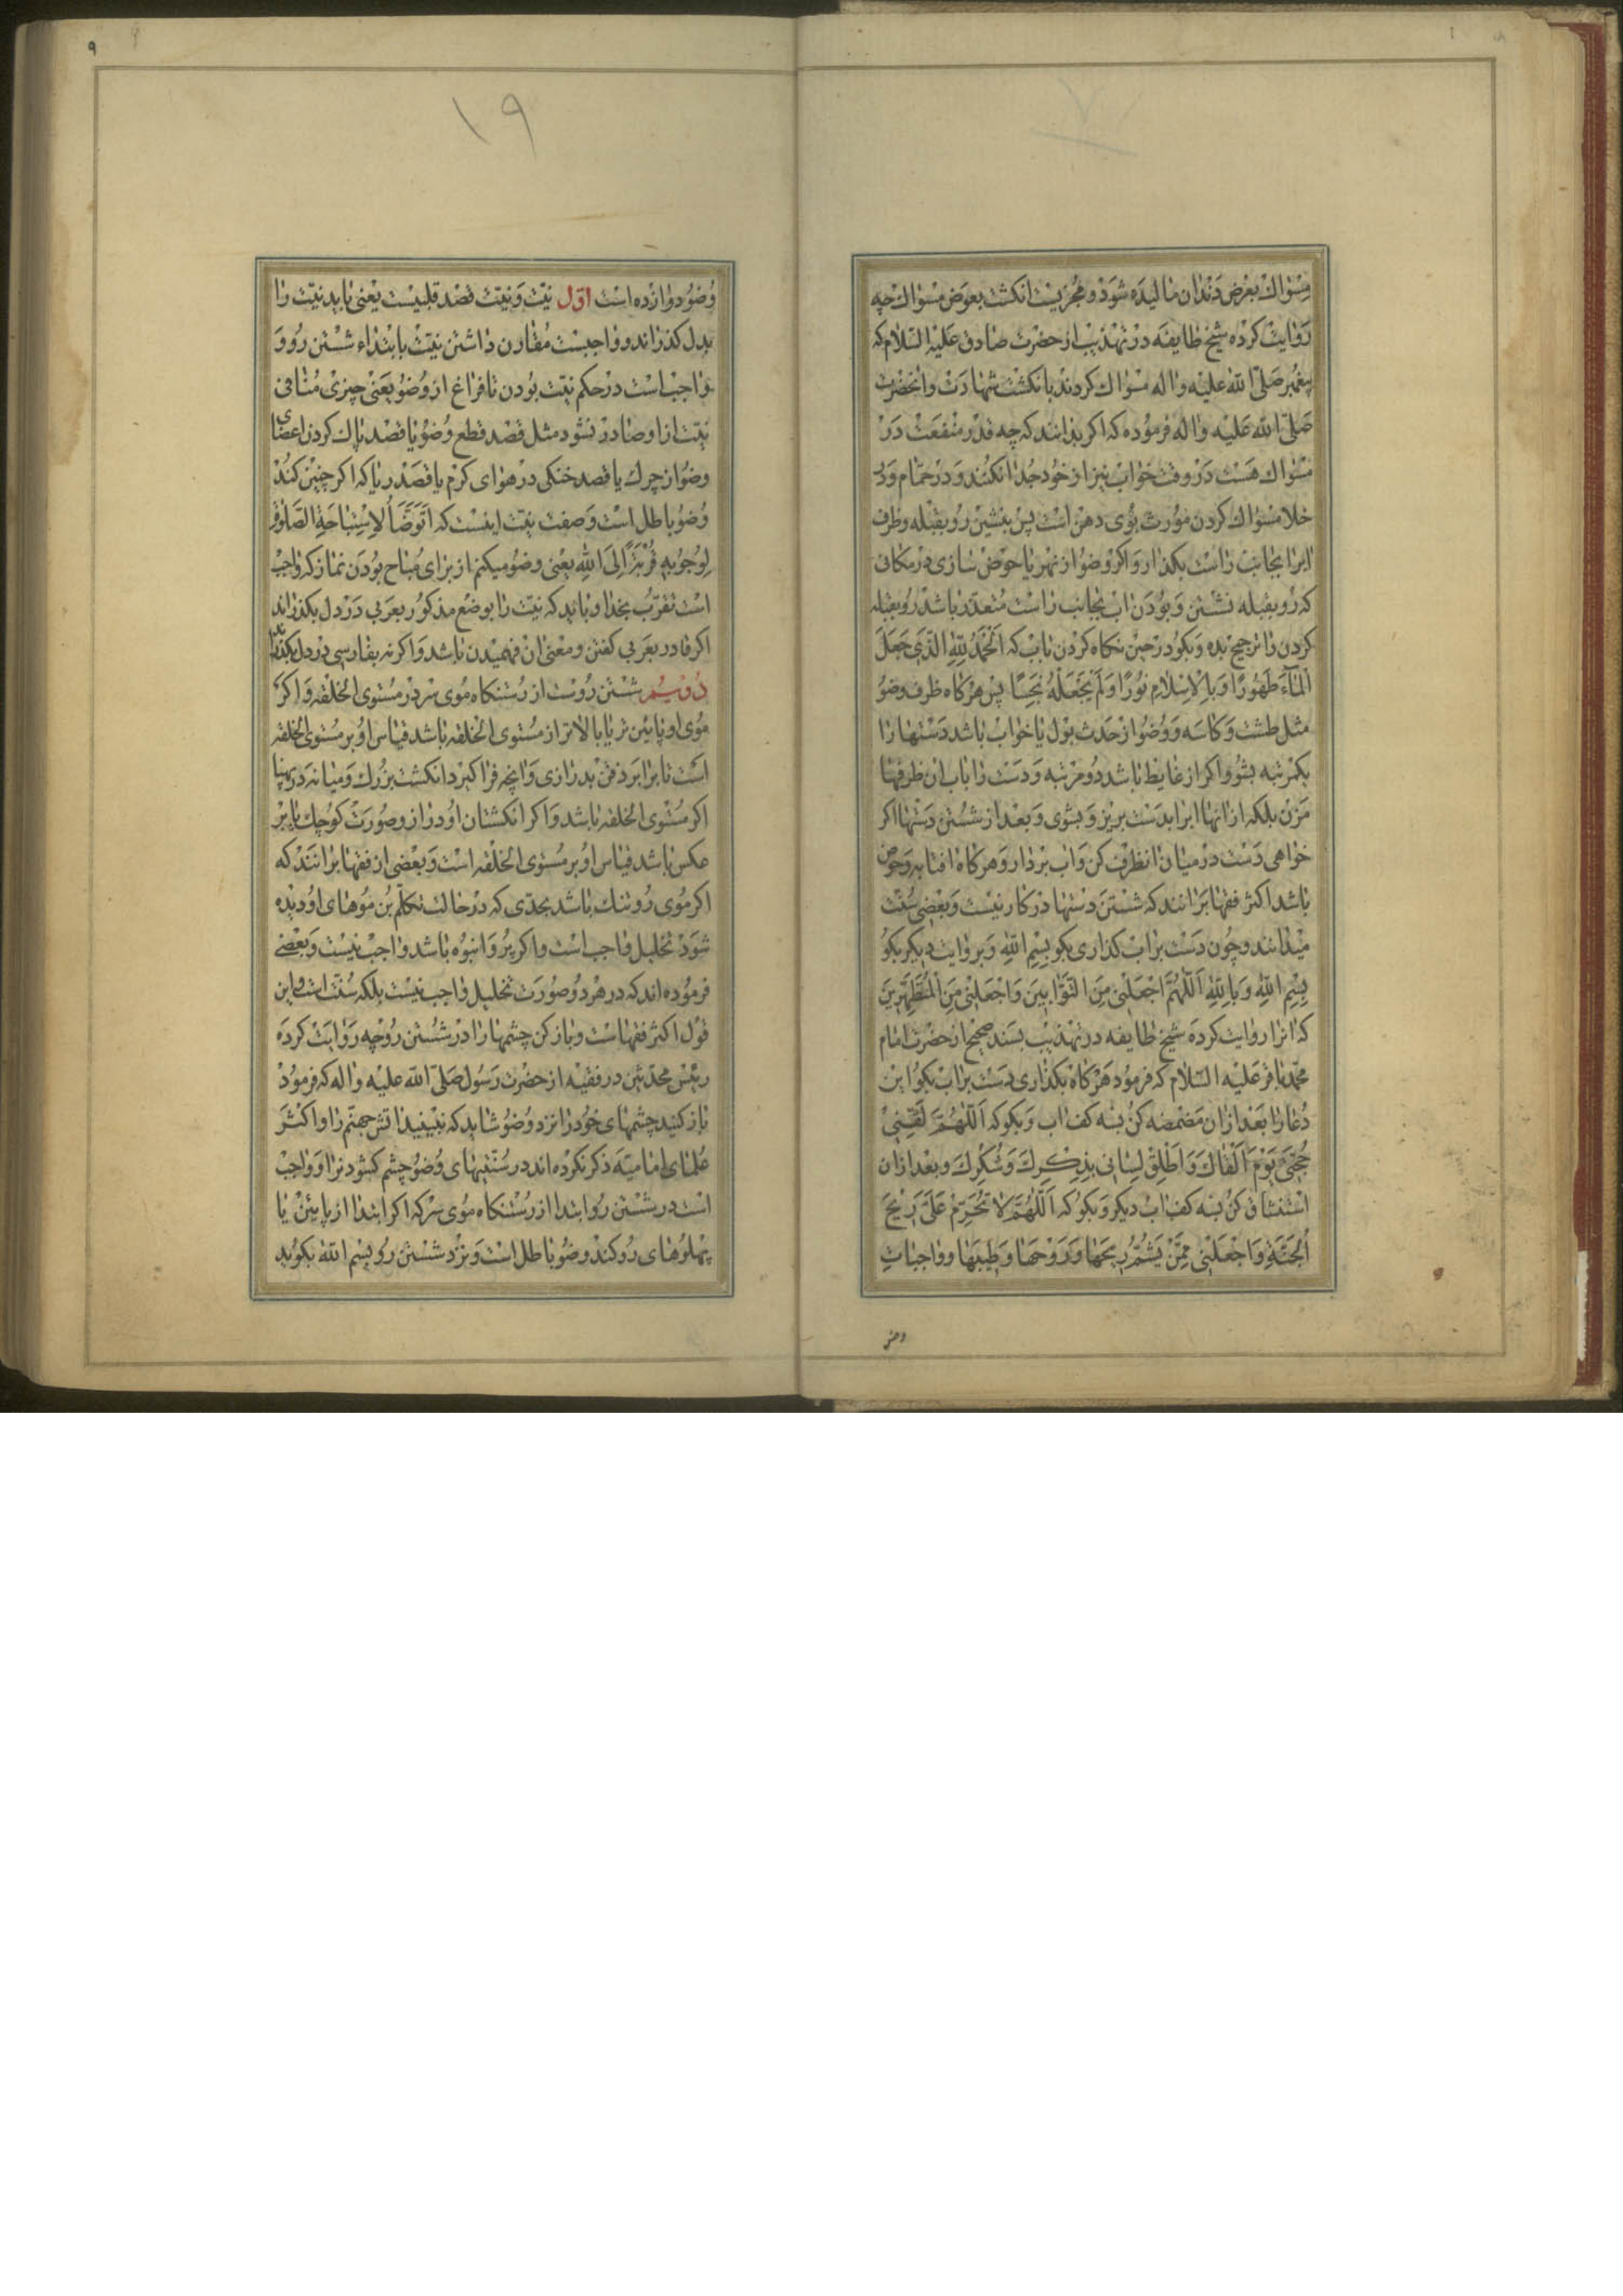 مسواك بعرض دندان مالیده شود و مجزیست انکشت بعوض مسواك چه
روایت کرده شیخ طایفه در تهذیب از حضرت صادق علیه السّلام که
پیغمبر صلّی الله علیه واله مسواك کردند بانکشت شهادت وانحضرت
صلّی الله علیه واله فرموده که اکر بدانند که چه قدر منفعت در
مسواك هست در وقت خواب نیز از خود جدا نکنند و در حمّام و در
خلا مسواك کردن مورث بوی دهن است پس بنشین رو بقبله و ظرف
ابرا بجانب راست بکذار و اکر وضو از نهر یا حوض سازی در مکانی
که رو بقبله نشستن و بودن اب بجانب راست متعذّر باشد رو بقبله
کردن را ترجیح بده و بکو در حین نکاه کردن باب که اَلْحَمْدُ لِلّهِ الَّذی جَعَلَ
الْمٰاءَ طَهُورًا وَبِالْاِسْلامِ نُورًا وَلَمْ یَجْعَلْهُ نَجِسًا پس هرکاه ظرف وضو
مثل طشت و کاسه و وضو از حدث بول یا خواب باشد دستها را
یکمرتبه بشو و اکر از غایط باشد دو مرتبه و دست را باب ان ظرفها
مزن بلکه از انها ابرا بدست بریز و بشوی و بعد از شستن دستها اکر
خواهی دست در میان انظرف کن و اب بردار و هرکاه افتابه و حوض
باشد اکثر فقها برانند که شستن دستها در کار نیست و بعضی سنّت
میدانند و چون دست براب کذاری بکو بسم اللهِ و بروایت دیکر بکو
بِسْمِ اللهِ وَبِاللهِ اَللّهُمَّ اجْعَلْنی مِنَ التَّوّٰابینَ وَاجْعَلْنی مِنَ الْمُتَطَهِّرینَ
که انرا روایت کرده شیخ طایفه در تهذیب بسند صحیح از حضرت امام
محمّد باقر علیه السّلام که فرمود هرکاه بکذاری دست براب بکو این
دعا را بعد ازان مضمضه کن بسه کف اب و بکو که اَللّهُمَّ لَقِّنی
حُجَّتی یَوْمَ اَلْقٰاكَ وَاَطْلِقْ لِسٰانی بِذِكْرِكَ وَشُكْرِكَ و بعد ازان
استنشاق کن بسه کف اب دیکر و بکو که اَللّهُمَّ لاتُحَرِّمْ عَلَیَّ ریحَ
الْجَنَّةِ وَاجْعَلْنی مِمَّنْ یَشُمُّ ریحَهٰا وَرَوْحَهٰا وَطیبَهٰا و واجبات
وضو دوازده است اوّل نیّت و نیّت قصد قلبیست یعنی باید نیّت را
بدل کذراند و واجبست مقارن داشتن نیّت بابتداء شستن رو و
واجب است در حکم نیّت بودن تا فراغ از وضو یعنی چیزی منافی
نیّت از او صادر نشود مثل قصد قطع وضو یا قصد پاك کردن اعضای
وضو از چرك یا قصد خنکی در هوای کرم یا قصد ریا که اکر چنین کند
وضو باطل است و صفت نیّت اینست که اَتَوَضَّأُ لِاسْتِبٰاحَةِ الصَّلٰوةِ
لِوُجُوبِهِ قُرْبَةً اِلَی اللهِ یعنی وضو میکنم از برای مباح بودن نماز که واجب
است تقرّب بخدا و باید که نیّت را بوضع مذکور بعربی در دل بکذراند
اکر قادر بعربی کفتن و معنی ان فهمیدن باشد و اکر نه بفارسی در دل بکذراند
دویّم شستن روست از رستنکاه موی سر در مستوی الخلقه و اکر
موی او پایین تر یا بالاتر از مستوی الخلقه باشد قیاس او بر مستوی الخلقه
است تا برابر ذقن بدرازی و انچه فرا کیرد انکشت بزرك و میانه در پهنا
اکر مستوی الخلقه باشد و اکر انکشتان او دراز و صورت کوچك یا بر
عکس باشد قیاس او بر مستوی الخلقه است و بعضی از فقها برانند که
اکر موی رو تنك باشد بحدّی که در حالت تکلّم بن موهای او دیده
شود تخلیل واجب است و اکر پر و انبوه باشد واجب نیست و بعضی
فرموده اند که در هر دو صورت تخلیل واجب نیست بلکه سنّت است و این
قول اکثر فقهاست و باز کن چشمها را در شستن رو چه روایت کرده
رئیس محدّثین در فقیه از حضرت رسول صلّی الله علیه واله که فرمود
باز کنید چشمهای خود را نزد وضو شاید که نبینید اتش جهنّم را و اکثر
علمای امامیّه ذکر نکرده اند در سنّتیهای وضو چشم کشودنرا و واجب
است در شستن رو ابتدا از رستنکاه موی سر که اکر ابتدا از پایین یا
پهلوهای رو کند وضو باطل است و نزد شستن رو بسم الله بکوید